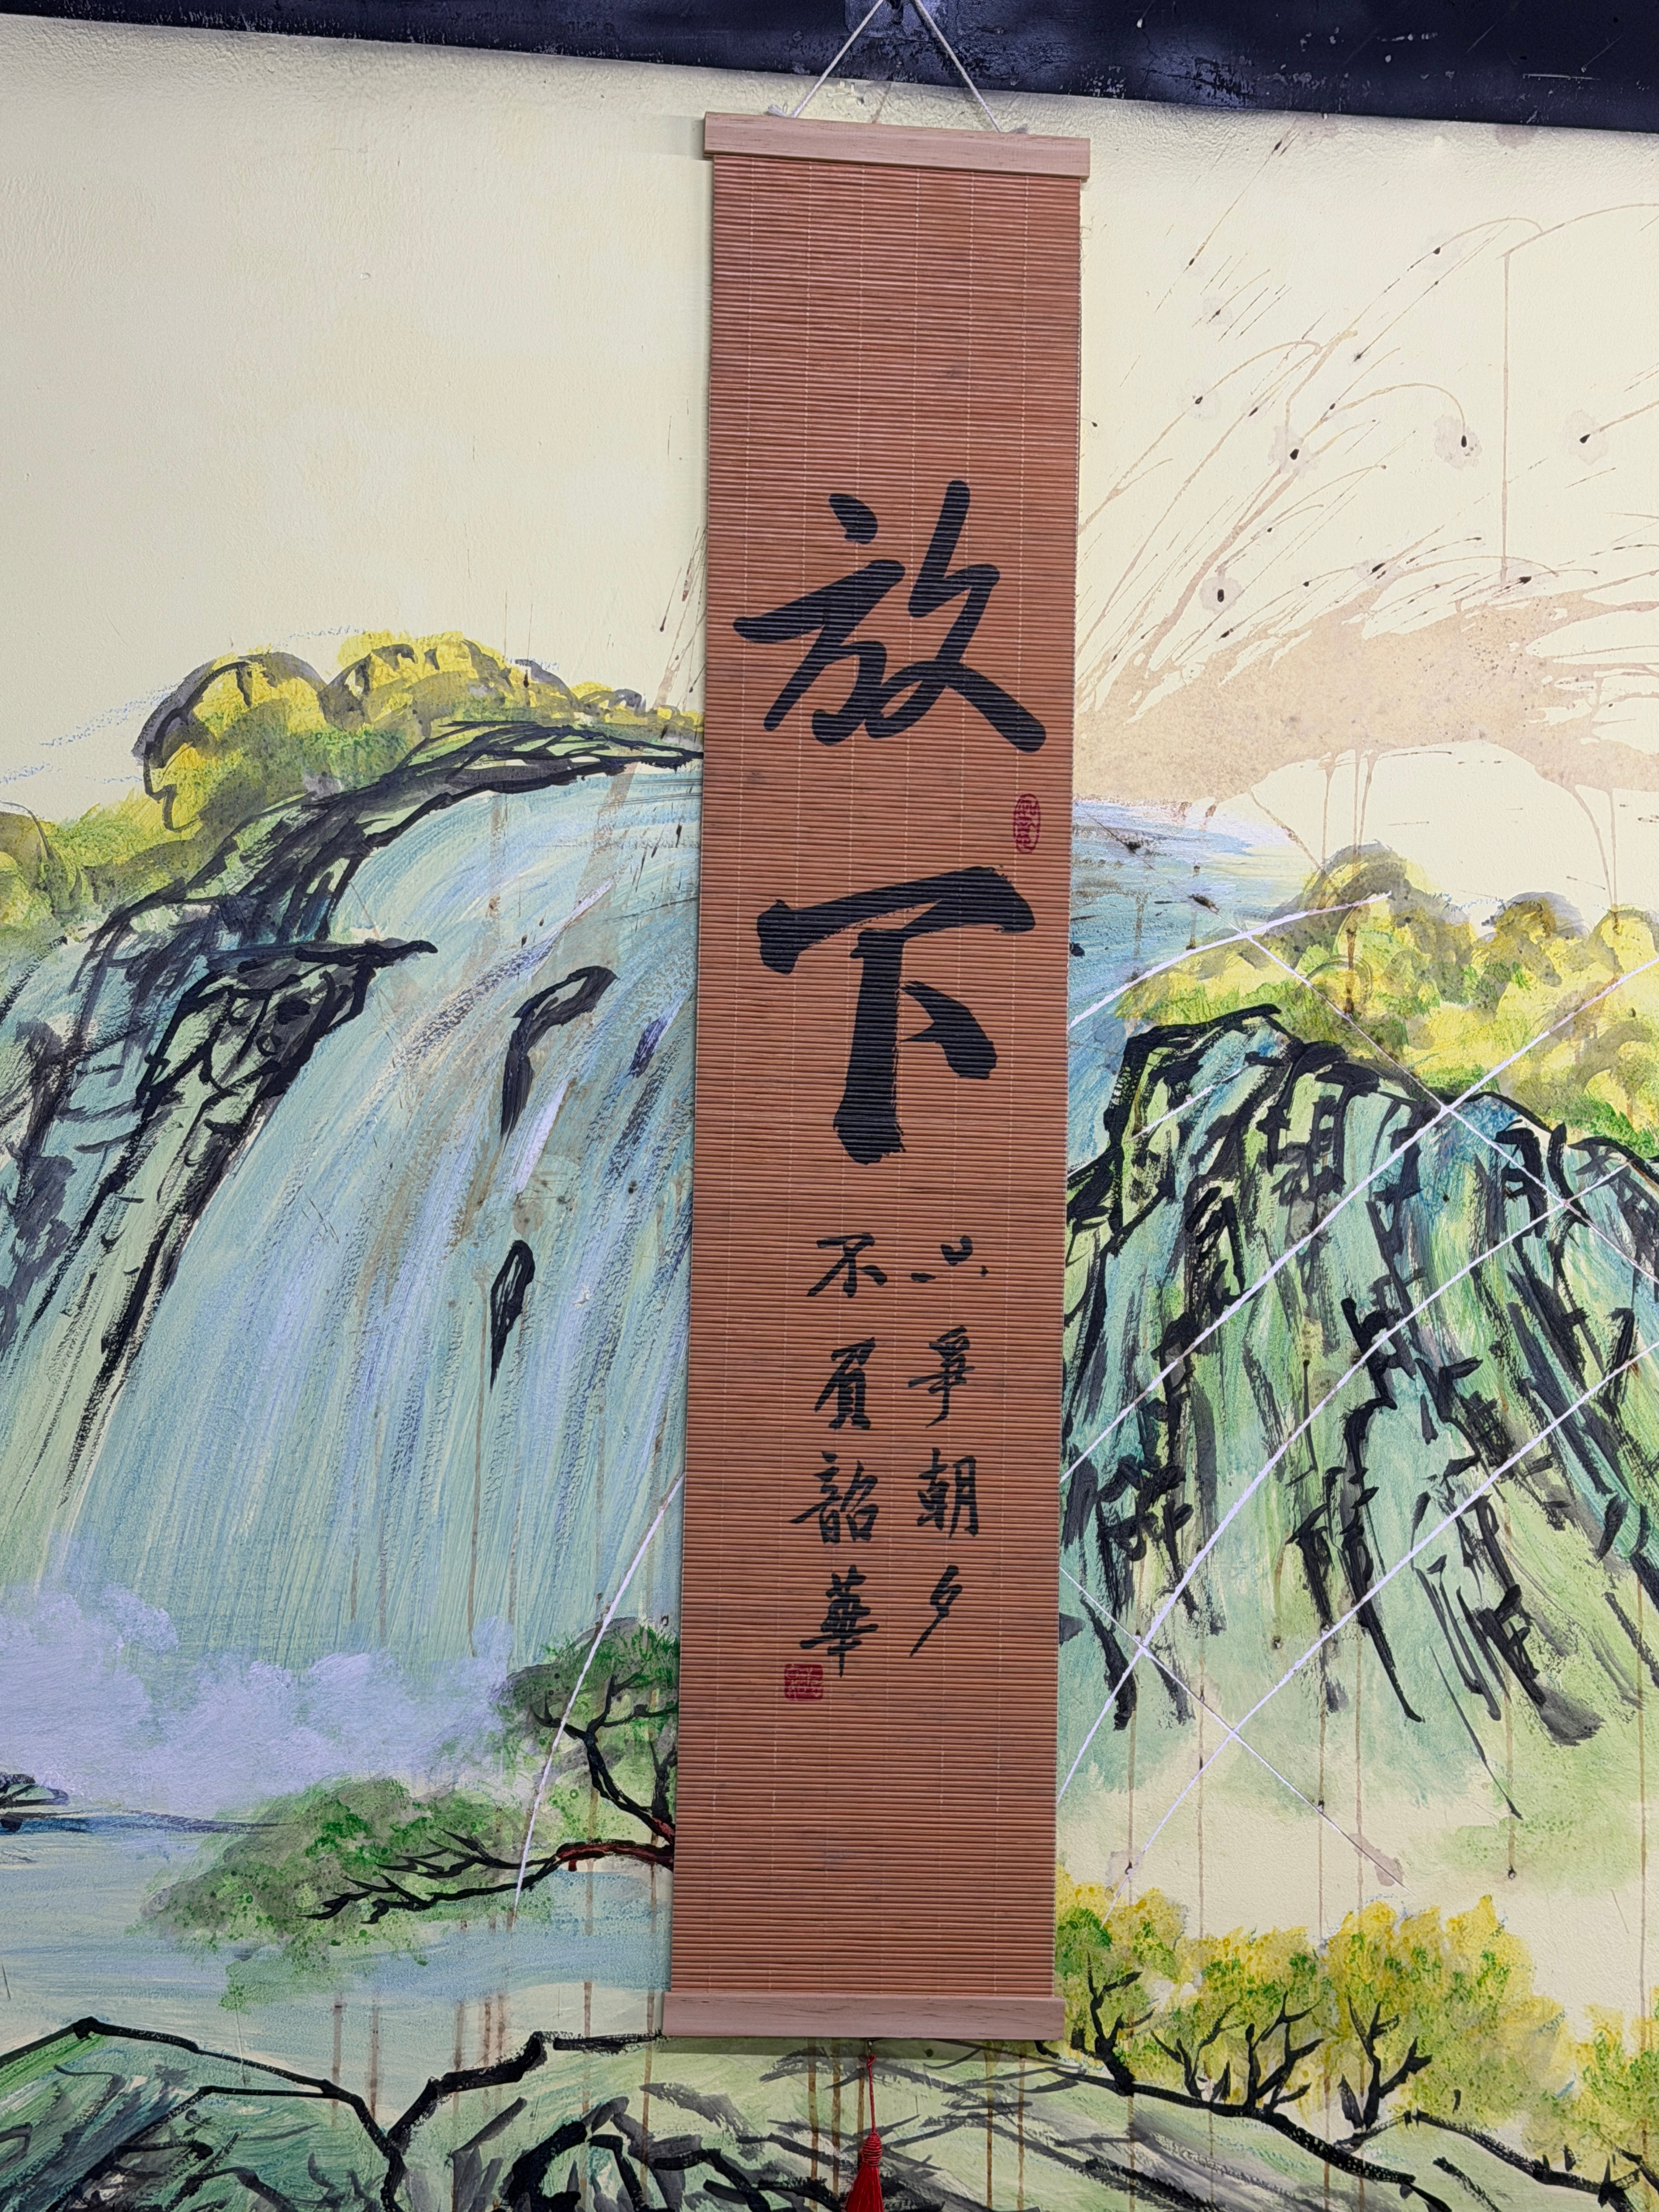 放下
只爭朝夕
不負韶華